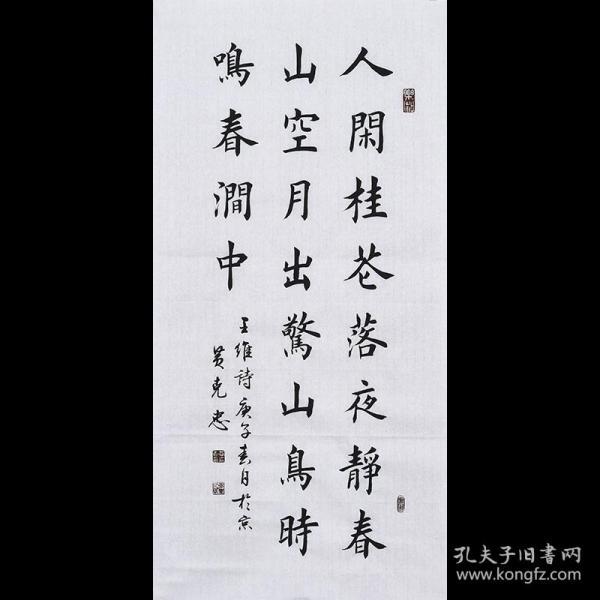 人閑桂花落夜靜春
山空月出驚山鳥時
鳴春澗中
王維詩庚子春日於京
黃克忠
孔夫子旧書网
www.kongfz.com